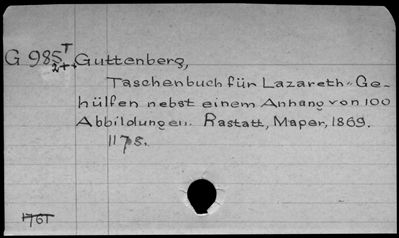 G 985 T Guttenberg,
Taschenbuch für Lazareth-Ge-
hülfen nebst einem Anhang von 100
Abbildungen. Rastatt, Mayer, 1869.
117 S.
1761